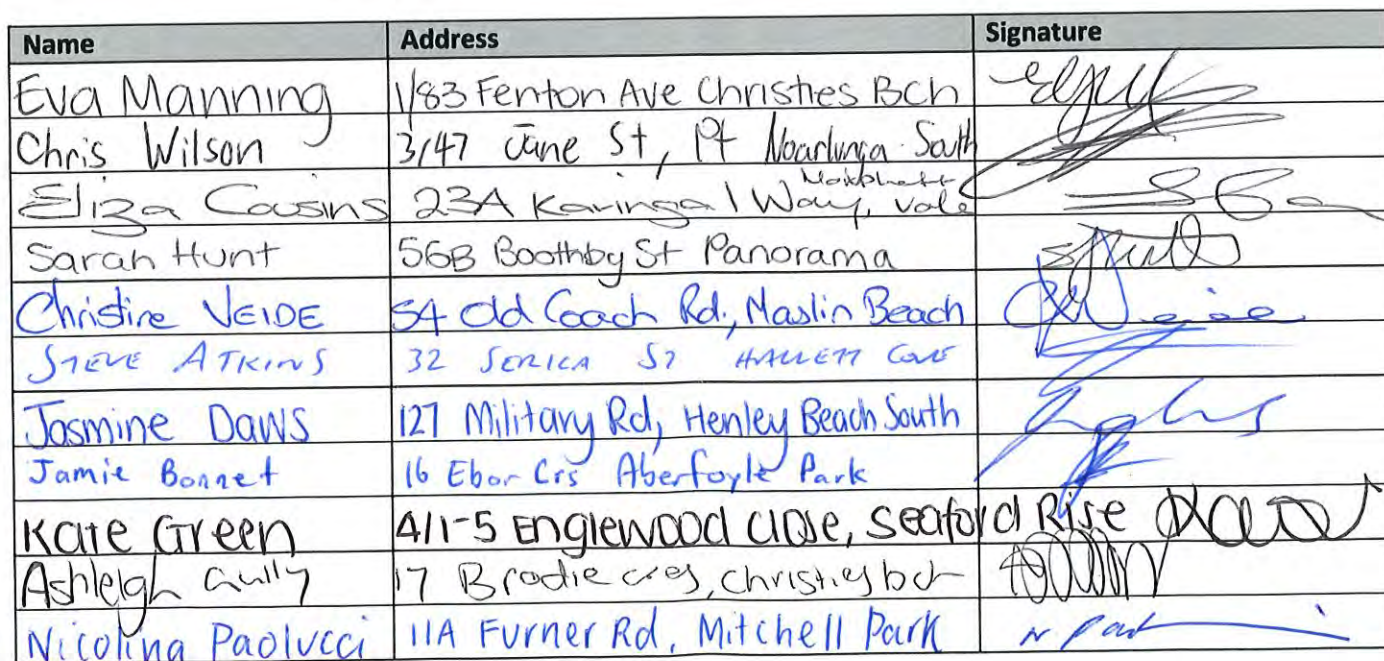 Name Address Signature
Eva Manning 1/83 Fenton Ave Christies Bch
Chris Wilson 3/47 June St, Pt Noarlunga South
Eliza Cousins 23A Karingal Way, Morphett Vale
Sarah Hunt 56B Boothby St Panorama
Christine VEIDE 54 Old Coach Rd., Maslin Beach
STEVE ATKINS 32 SERICA ST HALLETT COVE
Jasmine Daws 127 Military Rd, Henley Beach South
Jamie Bonnet 16 Ebor Crs Aberfoyle Park
Kate Green 4/1-5 Englewood close, Seaford Rise
Ashleigh Gully 17 Brodie cres, christies bch
Nicolina Paolucci 11A Furner Rd, Mitchell Park